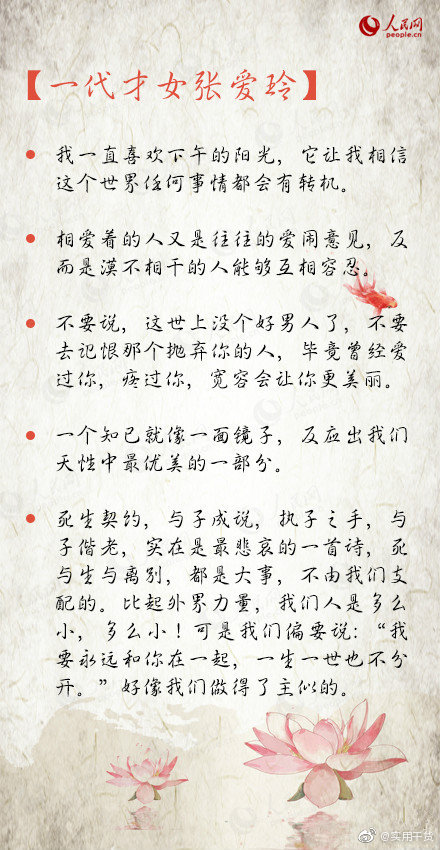 人民网
people.cn
【一代才女张爱玲】
我一直喜欢下午的阳光，它让我相信
这个世界任何事情都会有转机。
相爱着的人又是往往的爱闹意见，反
而是漠不相干的人能够互相容忍。
不要说，这世上没个好男人了，不要
去记恨那个抛弃你的人，毕竟曾经爱
过你，疼过你，宽容会让你更美丽。
一个知已就像一面镜子，反应出我们
天性中最优美的一部分。
死生契约，与子成说，执子之手，与
子偕老，实在是最悲哀的一首诗，死
与生与离别，都是大事，不由我们支
配的。比起外界力量，我们人是多么
小，多么小！可是我们偏要说：“我
要永远和你在一起，一生一世也不分
开。”好像我们做得了主似的。
@实用干货